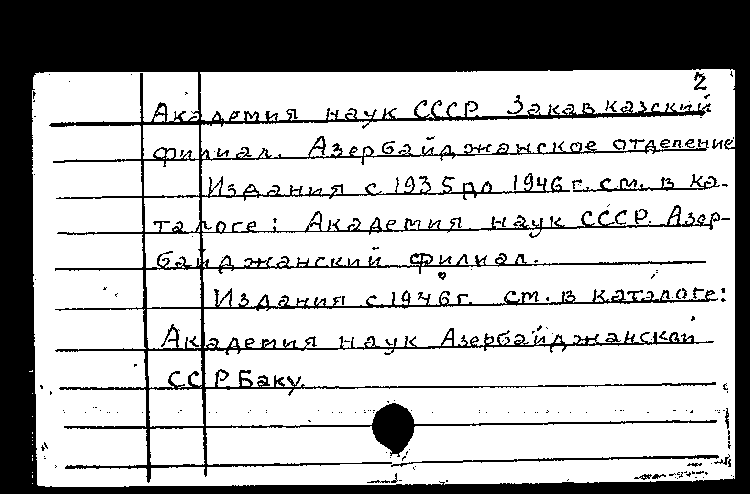 2
Академия наук СССР. Закавказский
филиал. Азербайджанское отделение
Издания с 1935 до 1946 г. см. в ка-
талоге: Академия наук СССР. Азер-
байджанский филиал.
Издания с 1946 г. см. в каталоге:
Академия наук Азербайджанской
ССР. Баку.